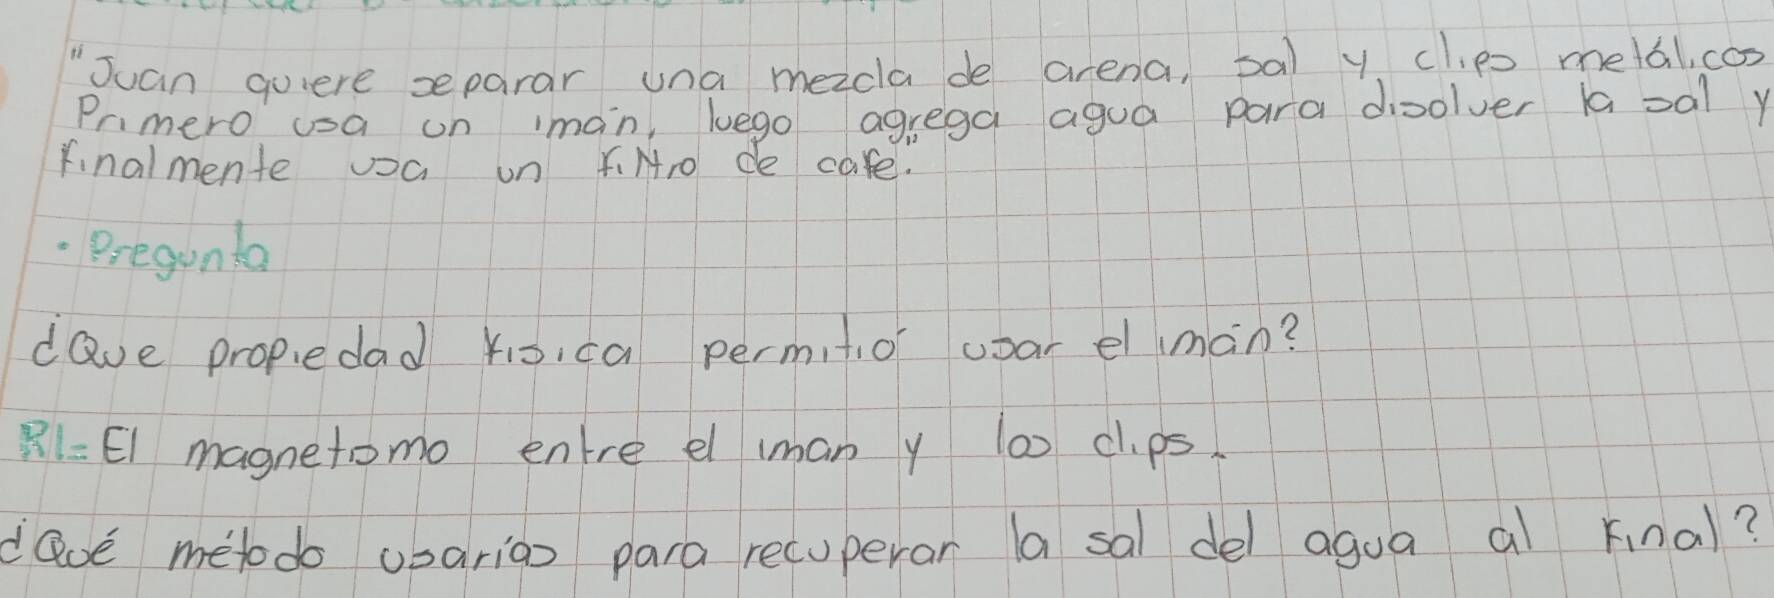 "Juan quiere separar una mezcla de arena, sal y clips metálicos
Primero usa un imán, luego agrega agua para disolver la sal y
finalmente usa un filtro de cafe."
• Pregunta
¿Que propiedad fisica permitió usar el imán?
R1= El magnetismo entre el iman y los clips.
¿Qué método usarias para recuperar la sal del agua al final?